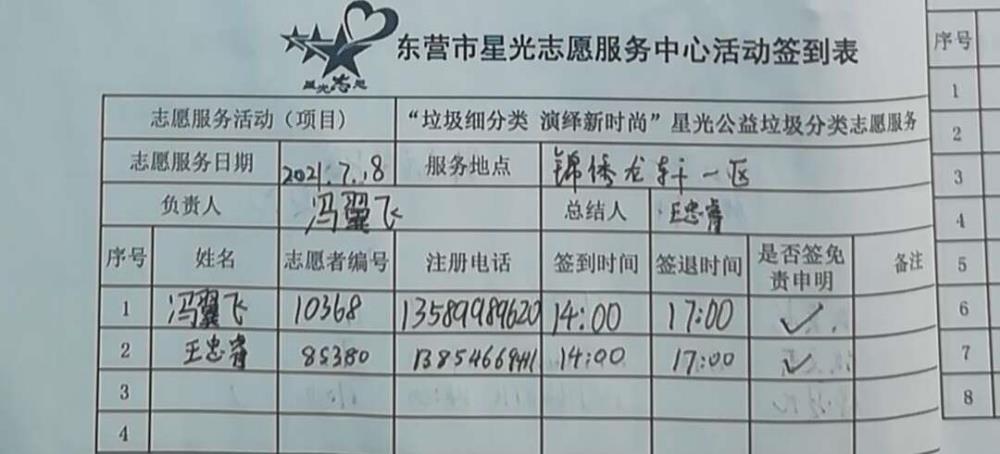 东营市星光志愿服务中心活动签到表
星光志愿
志愿服务活动（项目） “垃圾细分类 演绎新时尚”星光公益垃圾分类志愿服务
志愿服务日期 2021.7.18 服务地点 锦绣龙轩一区
负责人 冯翼飞 总结人 王忠睿
序号 姓名 志愿者编号 注册电话 签到时间 签退时间 是否签免责申明 备注
1 冯翼飞 10368 13589989620 14:00 17:00 ✓
2 王忠睿 85380 14:00 17:00 ✓
3
4
序号
1
2
3
4
5
6
7
8